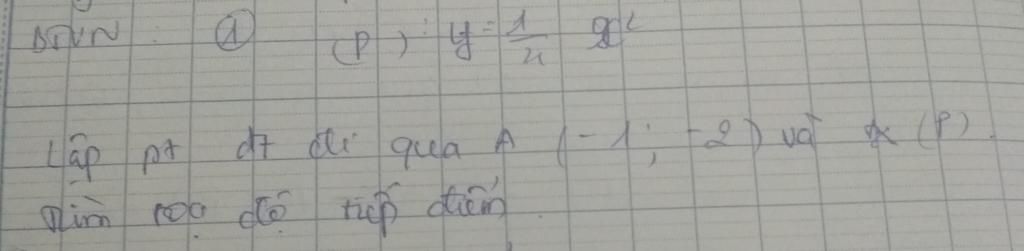 BTVN : ① (P) : y = 1/4 x²
Lập pt đt đi qua A (-1; -2) và tx (P).
Tìm toạ độ tiếp điểm.